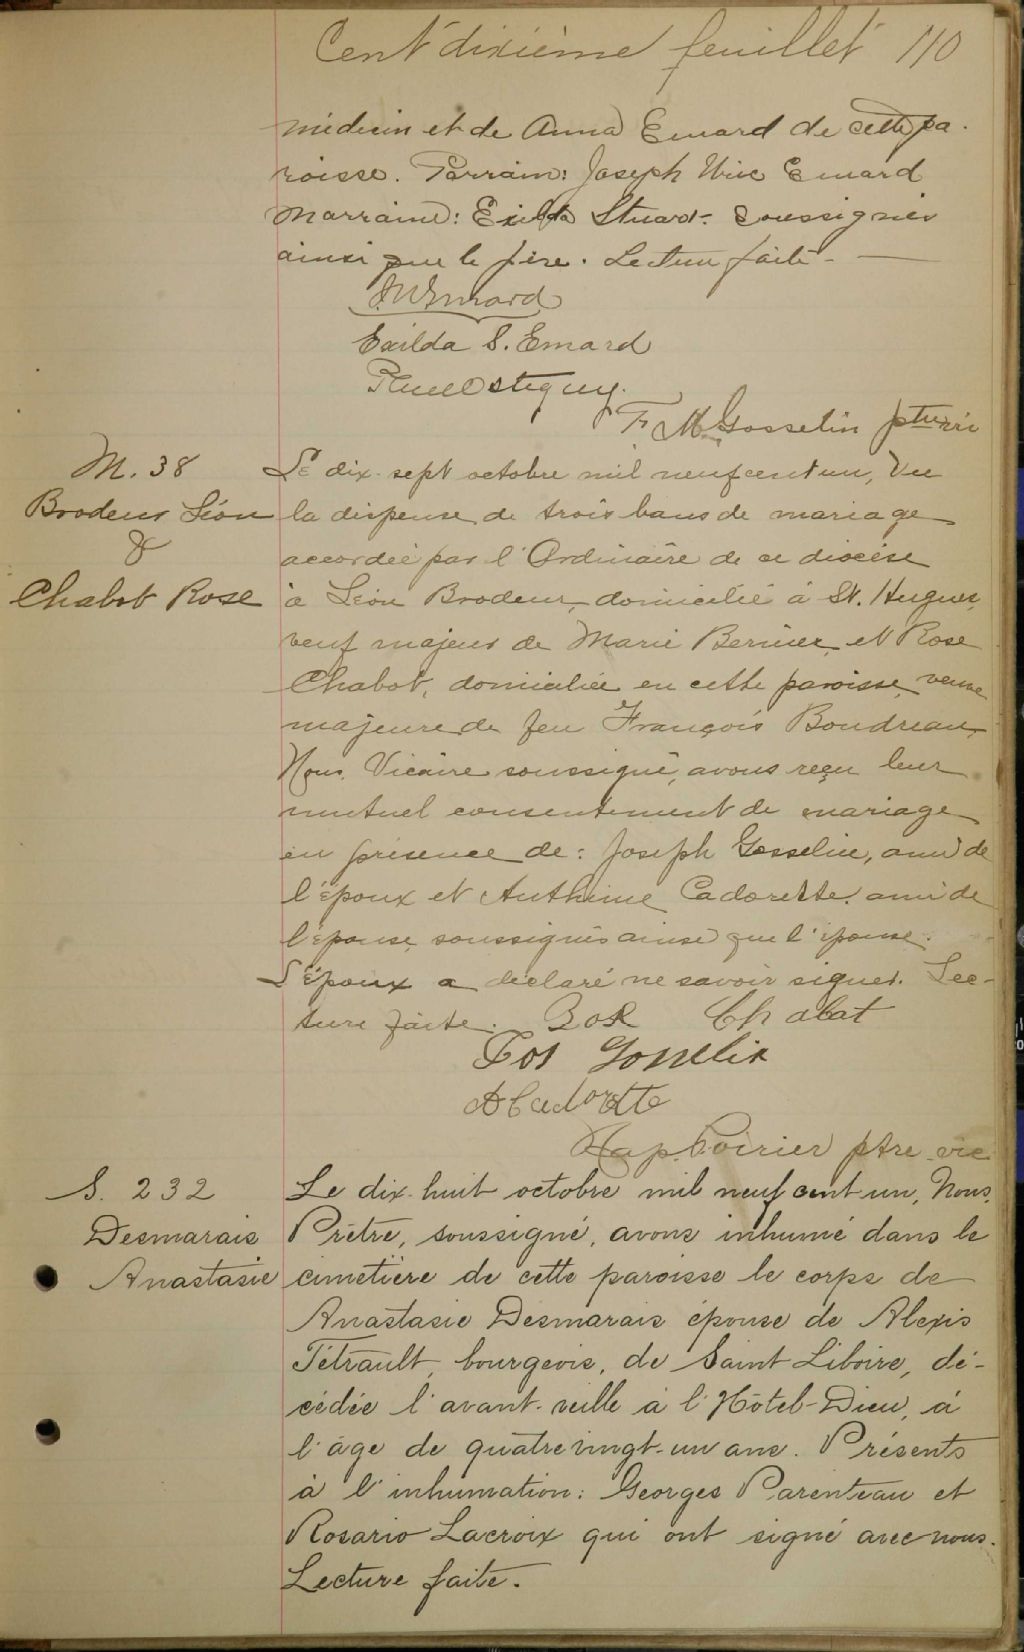 Cent dixième feuillet 110
médecin et de Anna Emard de cette pa-
roisse. Parrain: Joseph Emard
Marraine: Exilda Stuart. Soussignés
ainsi que le père. Lecture faite. —
Exilda S. Emard
F. M. Gosselin ptre
M. 38
Brodeur Léon
&
Chabot Rose
Le dix-sept octobre mil neuf cent un, Vu
la dispense de trois bans de mariage
accordée par l'Ordinaire de ce diocèse
à Léon Brodeur, domicilié à St. Hugues,
veuf majeur de Marie Bernier, et Rose
Chabot, domiciliée en cette paroisse, veuve
majeure de feu François Boudreau,
Nous Vicaire soussigné, avons reçu leur
mutuel consentement de mariage
en présence de: Joseph Gosselin, ami de
l'époux et Anthime Cadorette, ami de
l'épouse, soussignés ainsi que l'épouse.
L'époux a déclaré ne savoir signer. Lec-
ture faite. Ros Chabat
Jos Gosselin
A Cadorette
Poirier ptre vic
S. 232
Desmarais
Anastasie
Le dix-huit octobre mil neuf cent un, Nous,
Prêtre, soussigné, avons inhumé dans le
cimetière de cette paroisse le corps de
Anastasie Desmarais épouse de Alexis
Tétrault, bourgeois, de Saint Liboire, dé-
cédée l'avant-veille à l'Hôtel-Dieu, à
l'âge de quatrevingt-un ans. Présents
à l'inhumation: Georges Parenteau et
Rosario Lacroix qui ont signé avec nous.
Lecture faite.